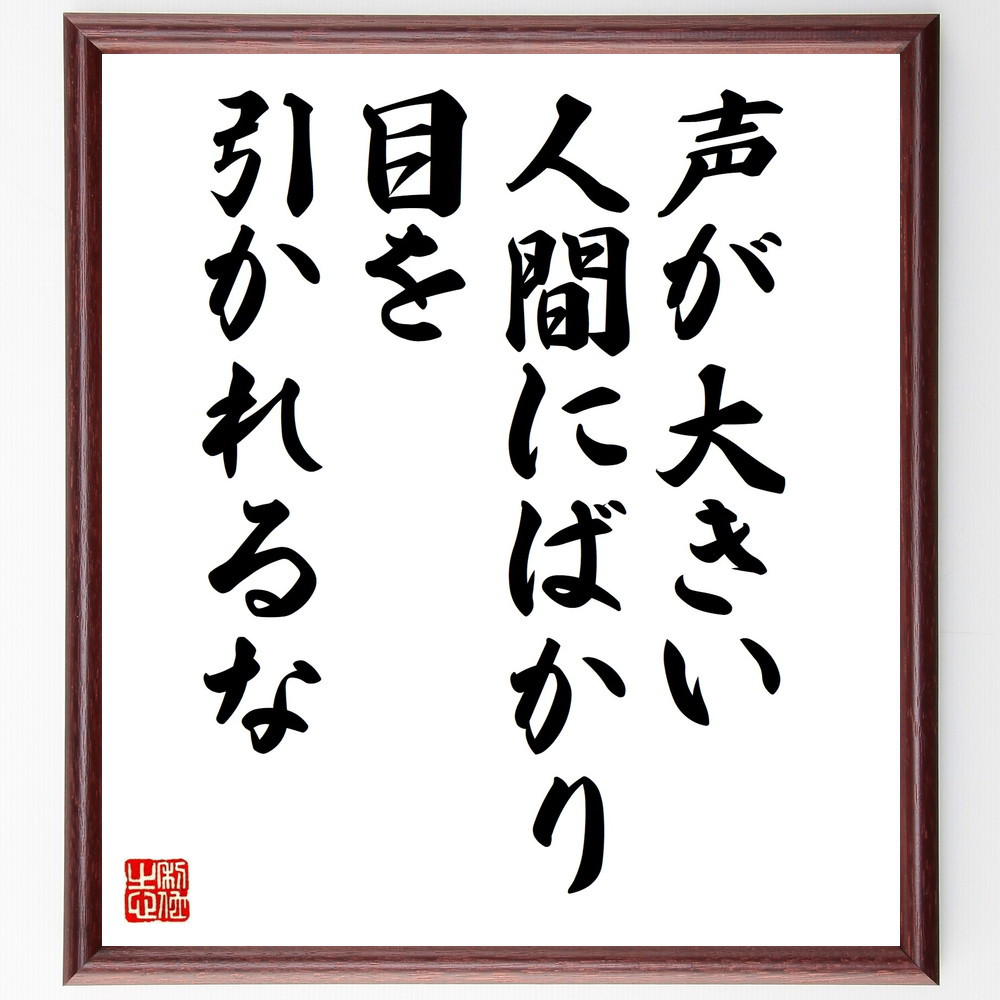 声が大きい
人間にばかり
目を
引かれるな